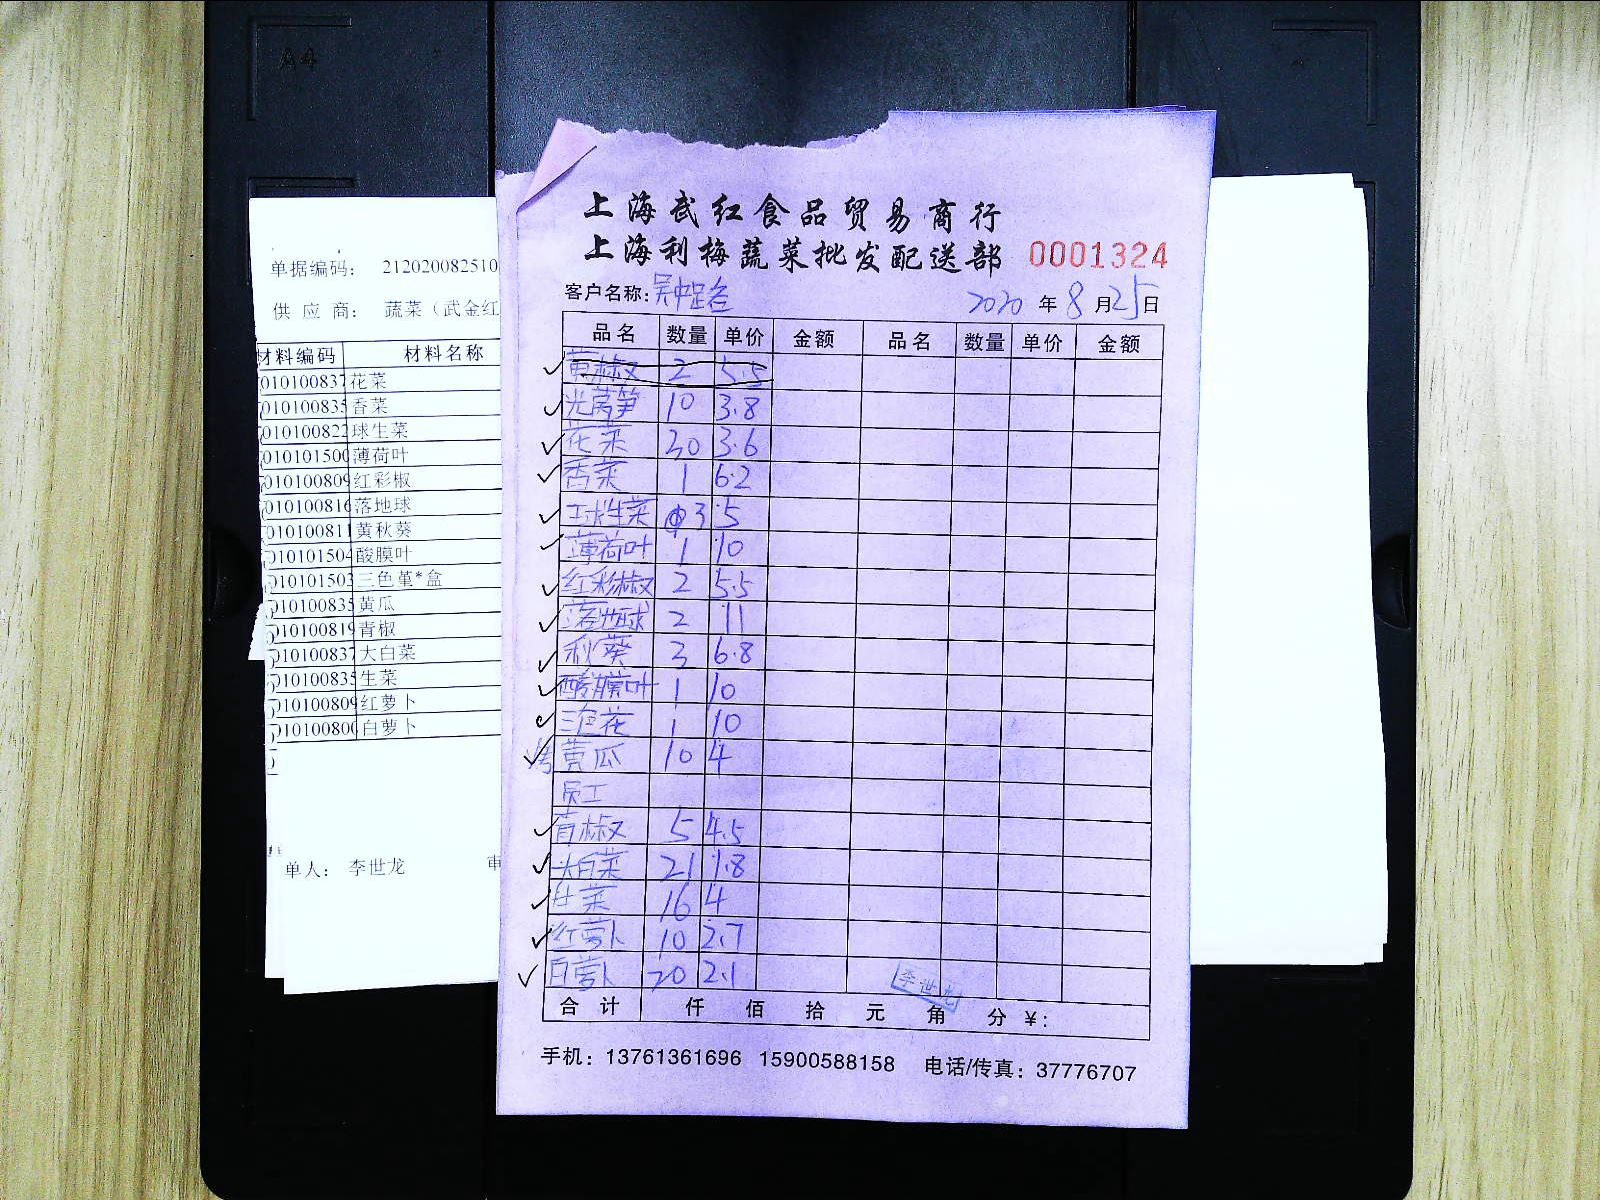 A4
单据编码： 212020082510
供 应 商： 蔬菜（武金红
材料编码 材料名称
010100837 花菜
010100835 香菜
010100822 球生菜
010101500 薄荷叶
010100809 红彩椒
010100816 落地球
010100811 黄秋葵
010101504 酸膜叶
010101503 三色堇*盒
010100835 黄瓜
010100819 青椒
010100837 大白菜
010100835 生菜
010100809 红萝卜
010100800 白萝卜
单人： 李世龙 审
上海武红食品贸易商行
上海利梅蔬菜批发配送部 0001324
客户名称： 2020 年 8 月 25 日
品名 数量 单价 金额 品名 数量 单价 金额
黄椒 2 5.5
光莴笋 10 3.8
花菜 30 3.6
香菜 1 6.2
球生菜 3 5
薄荷叶 1 10
红彩椒 2 5.5
落地球 2 11
秋葵 3 6.8
酸膜叶 1 10
三色花 1 10
黄瓜 10 4
员工
青椒 5 4.5
大白菜 21 1.8
生菜 16 4
红萝卜 10 2.7
白萝卜 20 2.1
李世龙
合 计 仟 佰 拾 元 角 分 ¥：
手机：13761361696 15900588158 电话/传真：37776707